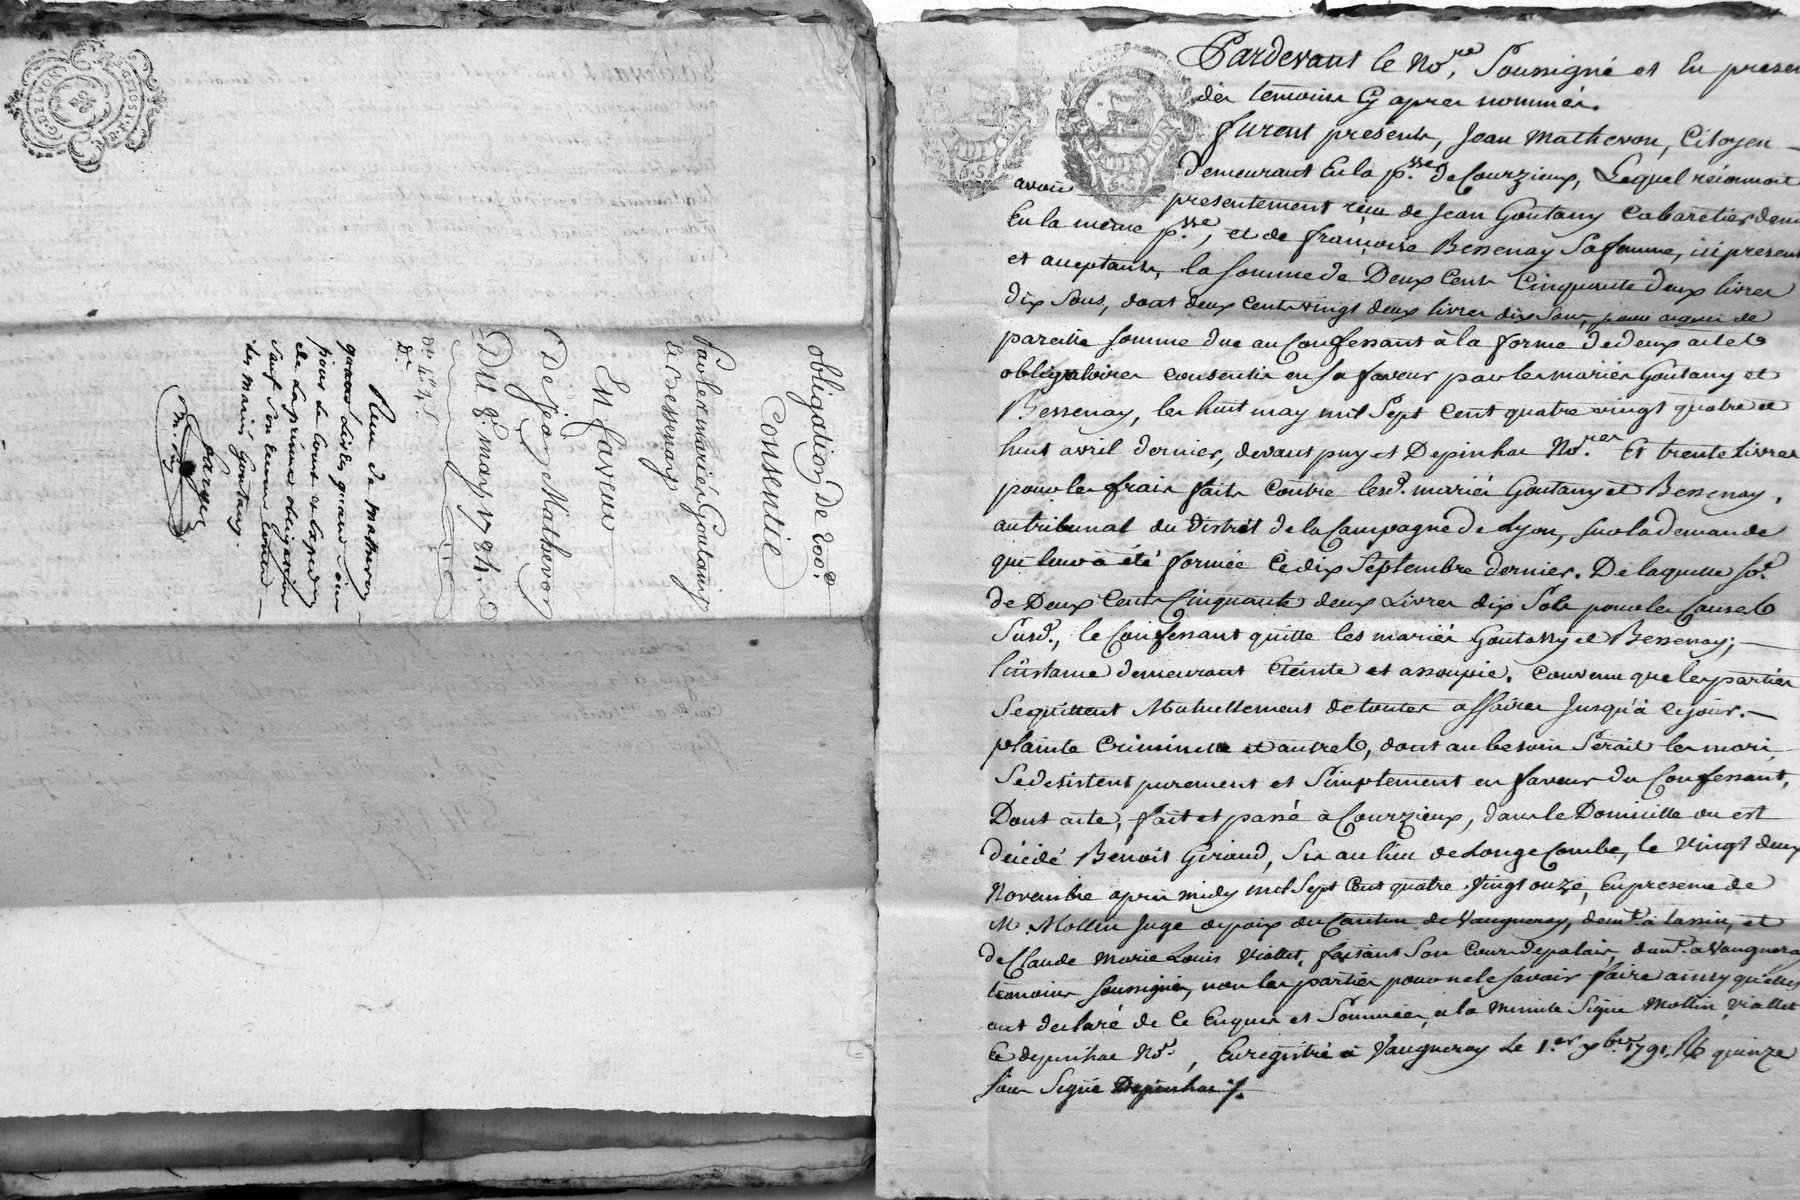 obligation De 200#.
Consentie
Par les mariés Goutany
et Bessenay
En faveur
De Jean Mathevon
Du 8e. may 1784.
Reçu de mathevon
quatre Livres quinze sous
pour le Cout et Expedition
de La presente obligation
Sauf Son recours contre
les mariés Goutany.
Pardevant le Nore. Soussigné et En presen
des temoins Cy apres nommés.
furent présents, Jean Mathevon, Citoyen
demeurant En la psse. de Courzieux, Lequel réconnoit
avoir presentement réçu de Jean Goutany Cabaretier dem
En la même psse., et de françoise Bessenay Sa femme, ici present
et aceptants, la Somme de Deux Cents Cinquante deux livres
dix Sous, dont deux cents vingt deux livres dix Sous, pour
pareille Somme due au Confessant à la forme de deux actes
obligatoires consentis en Sa faveur par les mariés Goutany et
Bessenay, les huit may mil Sept Cent quatre vingt quatre et
huit avril dernier, devant puy et Depinhac Nores. Et trente Livres
pour les frais faits Contre lesd. mariés Goutany et Bessenay,
au tribunal du District de la Campagne de Lyon, Sur la demande
qui leur à été formée Le dix Septembre dernier. De laquelle Se.
de Deux Cents Cinquante deux Livres dix Sols pour les Causes
Susd., le Confessant quitte les mariés Goutany et Bessenay;
l'instance demeurant Eteinte et assoupie. Convenu que les parties
Se quittent Mutuellement de toutes affaires Jusqu'à ce jour.
plainte Criminelle et autres, dont au besoin Serait les mari
Se desistent purement et Simplement en faveur du Confessant,
Dont acte, fait et passé à Courzieux, dans le Domicille ou est
décédé Benoit Giraud, Sis au lieu de Longe Combe, le vingt deux
Novembre apres midy mil Sept Cent quatre vingt onze, En presence de
Mr. Mollin Juge de paix du Canton de Vaugneray, demt. à tassin, et
de Claude Marie Louis Viallet, faisant Son Cours de palais, demt. a Vaugneray
temoins Soussignés, non les parties pour ne le Savoir faire ainsy qu'elles
ont declaré de Ce Enquis et Sommées, a la Minute Signé Mollin, Viallet
Et depinhac Nore., Enregistré à Vaugneray Le 1.er xbre. 1791. R quinze
Sous Signé Depinhac